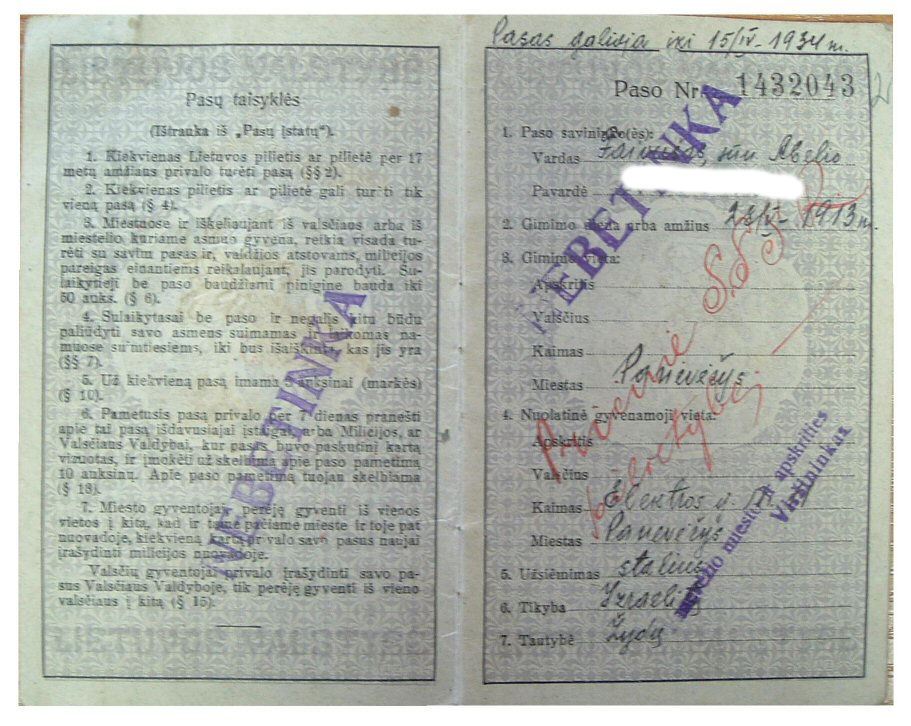 Pasų taisyklės
(Ištrauka iš „Pasų įstatų").
1. Kiekvienas Lietuvos pilietis ar pilietė per 17
metų amžiaus privalo turėti pasą (§§ 2).
2. Kiekvienas pilietis ar pilietė gali turėti tik
vieną pasą (§ 4).
3. Miestuose ir iškeliaujant iš valsčiaus arba iš
miestelio kuriame asmuo gyvena, reikia visada tu-
rėti su savim pasas ir, valdžios atstovams, milicijos
pareigas einantiems reikalaujant, jis parodyti. Su-
laikytieji be paso baudžiami pinigine bauda iki
50 auks. (§ 6).
4. Sulaikytasai be paso ir negalįs kitu būdu
paliudyti savo asmens suimamas ir laikomas na-
muose suimtiesiems, iki bus išaiškinta, kas jis yra
(§§ 7).
5. Už kiekvieną pasą imama 5 auksinai (markės)
(§ 10).
6. Pametusis pasą privalo per 7 dienas pranešti
apie tai pasą išdavusiajai įstaigai, arba Milicijos, ar
Valsčiaus Valdybai, kur pasas buvo paskutinį kartą
vizuotas, ir įmokėti už skelbimą apie paso pametimą
10 auksinų. Apie paso pametimą tuojau skelbiama
(§ 13).
7. Miesto gyventojai, perėję gyventi iš vienos
vietos į kitą, kad ir tame pačiame mieste ir toje pat
nuovadoje, kiekvieną kartą privalo savo pasus naujai
įrašydinti milicijos nuovadoje.
Valsčių gyventojai privalo įrašydinti savo pa-
sus Valsčiaus Valdyboje, tik perėję gyventi iš vieno
valsčiaus į kitą (§ 15).
NEBETINKA
Pasas galioja iki 15/IV-1934 m.
Paso Nr. 1432043
1. Paso savininko(ės):
Vardas sūn. Abelio
Pavardė
2. Gimimo diena arba amžius 1913 m.
3. Gimimo vieta:
Apskritis
Valsčius
Kaimas
Miestas Panevėžys
4. Nuolatinė gyvenamoji vieta:
Apskritis
Valsčius
Kaimas
Miestas Panevėžys
5. Užsiėmimas stalius
6. Tikyba Izraelitų
7. Tautybė Žydų
NEBETINKA
miesto ir apskrities
Viršininkas